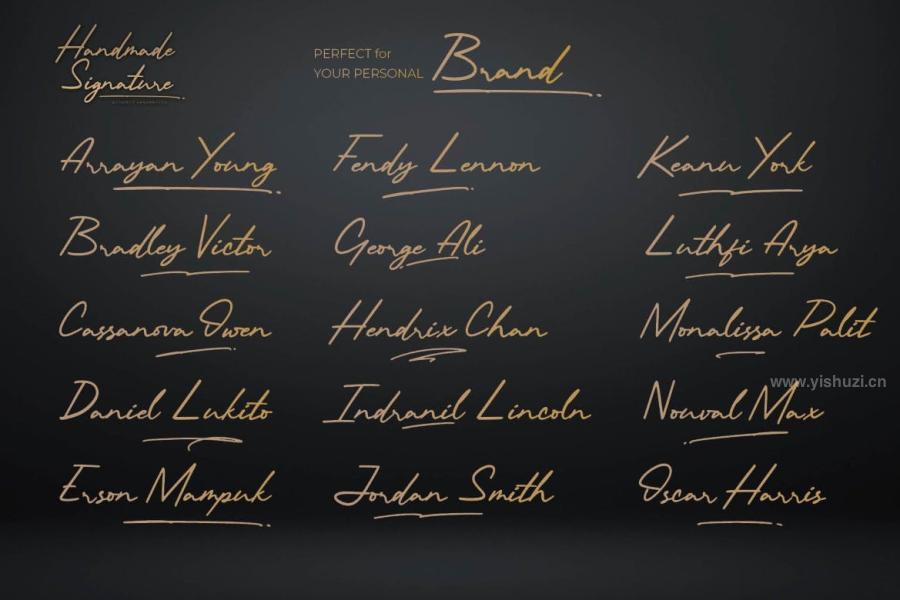 Handmade
Signature
PERFECT for
YOUR PERSONAL
Brand
Arrayan Young
Fendy Lennon
Keanu York
Bradley Victor
George Ali
Luthfi Arya
Cassanova Owen
Hendrix Chan
Monalissa Palit
www.yishuzi.cn
Daniel Lukito
Indranil Lincoln
Nouval Max
Erson Mampuk
Jordan Smith
Oscar Harris